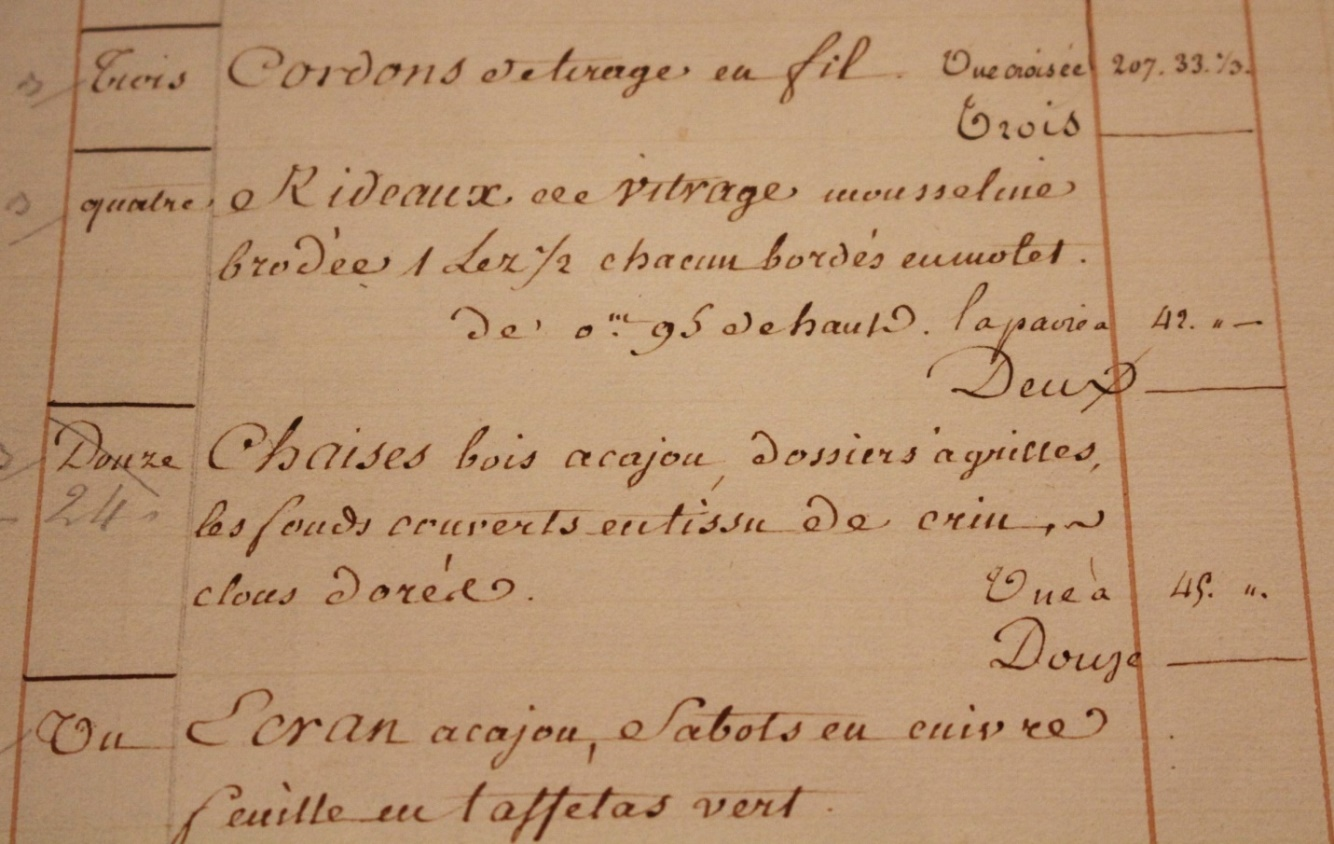 Trois Cordons de tirage en fil . Une croisée 207. 33. 1/3.
Trois
quatre Rideaux de vitrage mousseline
brodée 1 Lez 1/2 chacun bordés en molet .
de 0.m 95 de haut . la paire à 42. " —
Deux
Douze Chaises bois acajou, dossiers à grilles,
24 les fonds couverts en tissu de crin,
clous dorés . Une à 45. ".
Douze
Un Ecran acajou, Sabots en cuivre
feuille en taffetas vert .